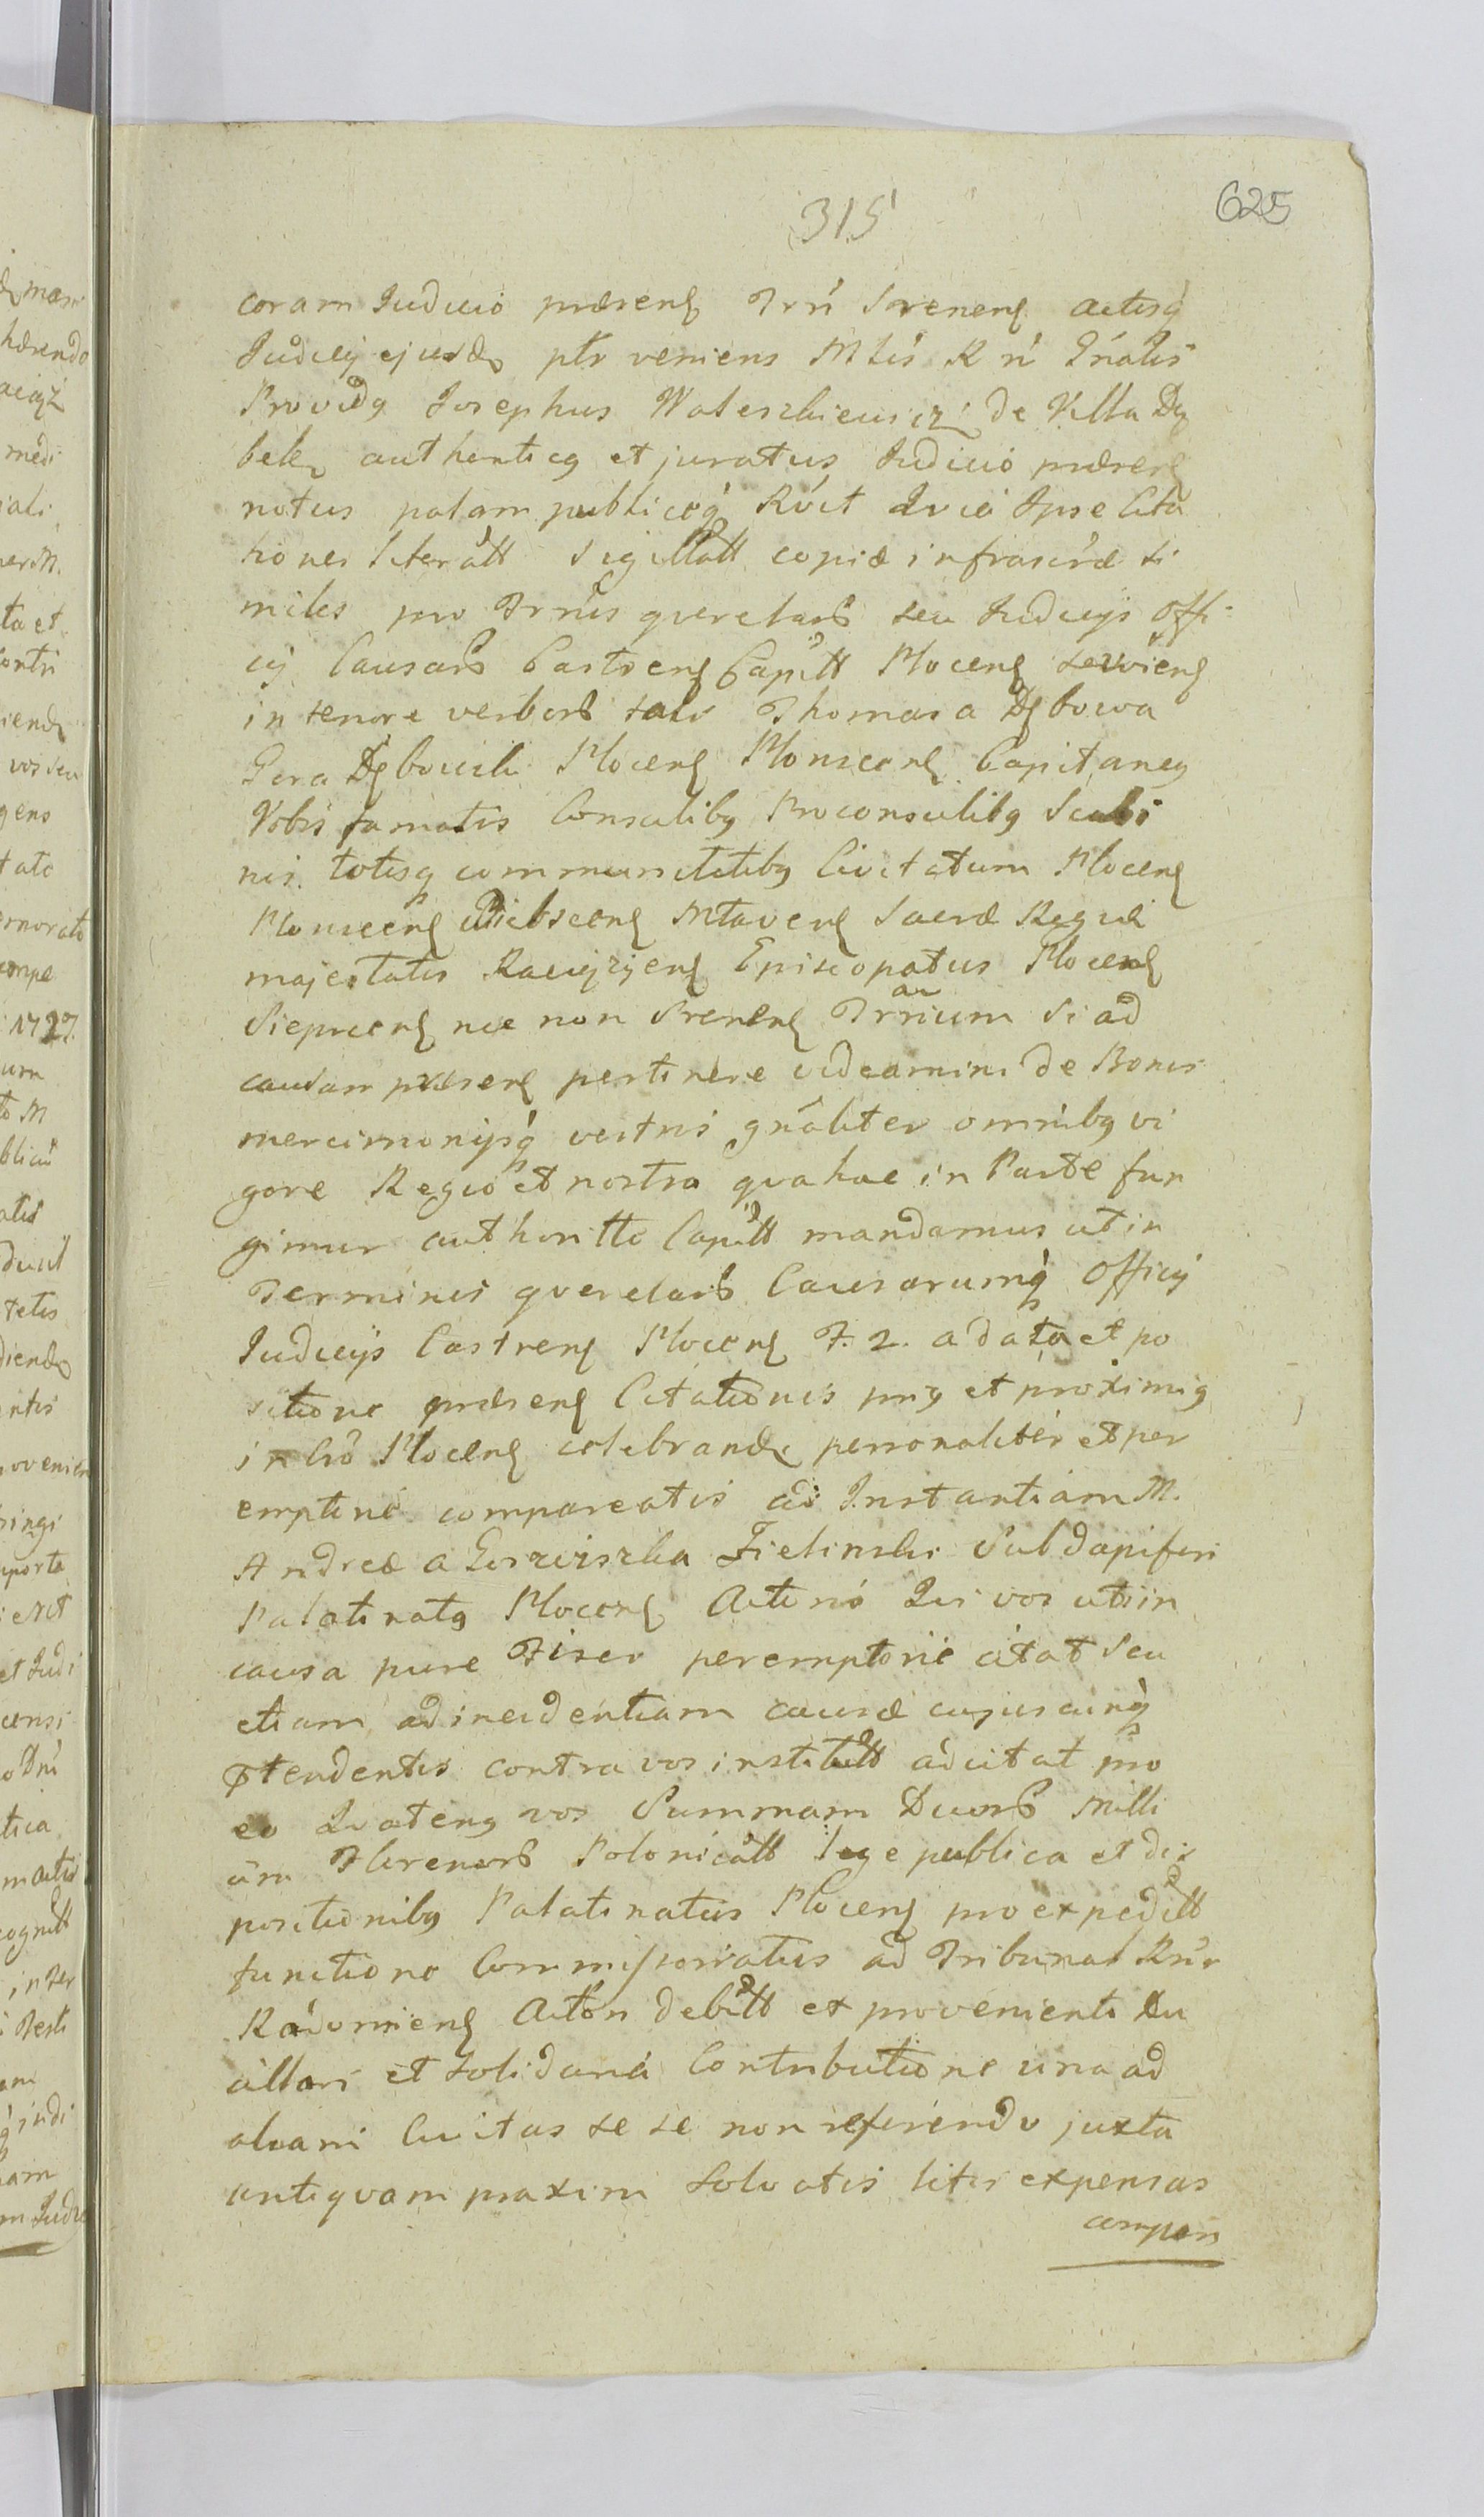 625
315
coram Judicio præsenς Trrī Srenenς actisq́
Judicij ejusdę ptr veniens Mtris R ń Gńalis
Providꝯ Josephus Waleszkiewicz de Villa Dę
belę authenticꝯ et juratus Judicio præsenς
notus palam publiceq́ Róvit Qvia Ipse Cita
tiones literátt Sigillátt copiæ infrascŕæ si
miles pro Trńis qverelarꝝ seu Judicijs Offi
cij Causarꝝ Castrenς Capitt Plocenς servienς
in tenore verborꝝ tali Thomas a Dębowa
Gora Dębowski Plocenς Plonscenς Capitaneꝯ
Vobis famatis Consulibꝯ Proconsulibꝯ Scabi
nis totisq́ communitatibꝯ Civitatum Plocenς
Plonscenς Bielscenς Mlavenς Sacræ Regiæ
majestatis Raciązijenς Episcopatus Plocenς
Siepricenς nec non Srenenς Trrārum Si ad
causam præsenς pertinere videamini de Bonis
mercimonijsq́ vestris gnáliter omnibꝯ vi
gore Regio et nostra qva hac in Parte fun
gimur authoritte Capitt mandamus ut in
Terminis qverelarꝝ Causarumq́ Officij
Judicijs Castrenς Plocenς F. 2. a data et po
sitione præsenς Citationis prῖꝯ et proximiꝯ
in Cró Plocenς celebrandę personaliter et per
emptrie compareatis ad Instantiam M.
Andreæ a Goszwiszka Zielinski Subdapiferi
Palatinatꝯ Plocenς Actoris Qui vos uti in
causa pure Fisci peremptorie citat Seu
etiam ad incidentiam causæ cujuscunq́
ptendentis contra vos institutt adcitat pro
eo Qvatenꝯ vos Summam Duorꝝ milli
um Florenorꝝ Polonicátt lege publica et dis
positionibꝯ Palatinatus Plocenς pro expeditt
functione Commissoriatus ad Tribunal Rńi
Radomienς Actori debitt ex provenienti Du
allari et Solidaria Contributione una ad
aliam Civitas se se non referendo juxta
antiqvam praxim Solvatis litis expensas
compen